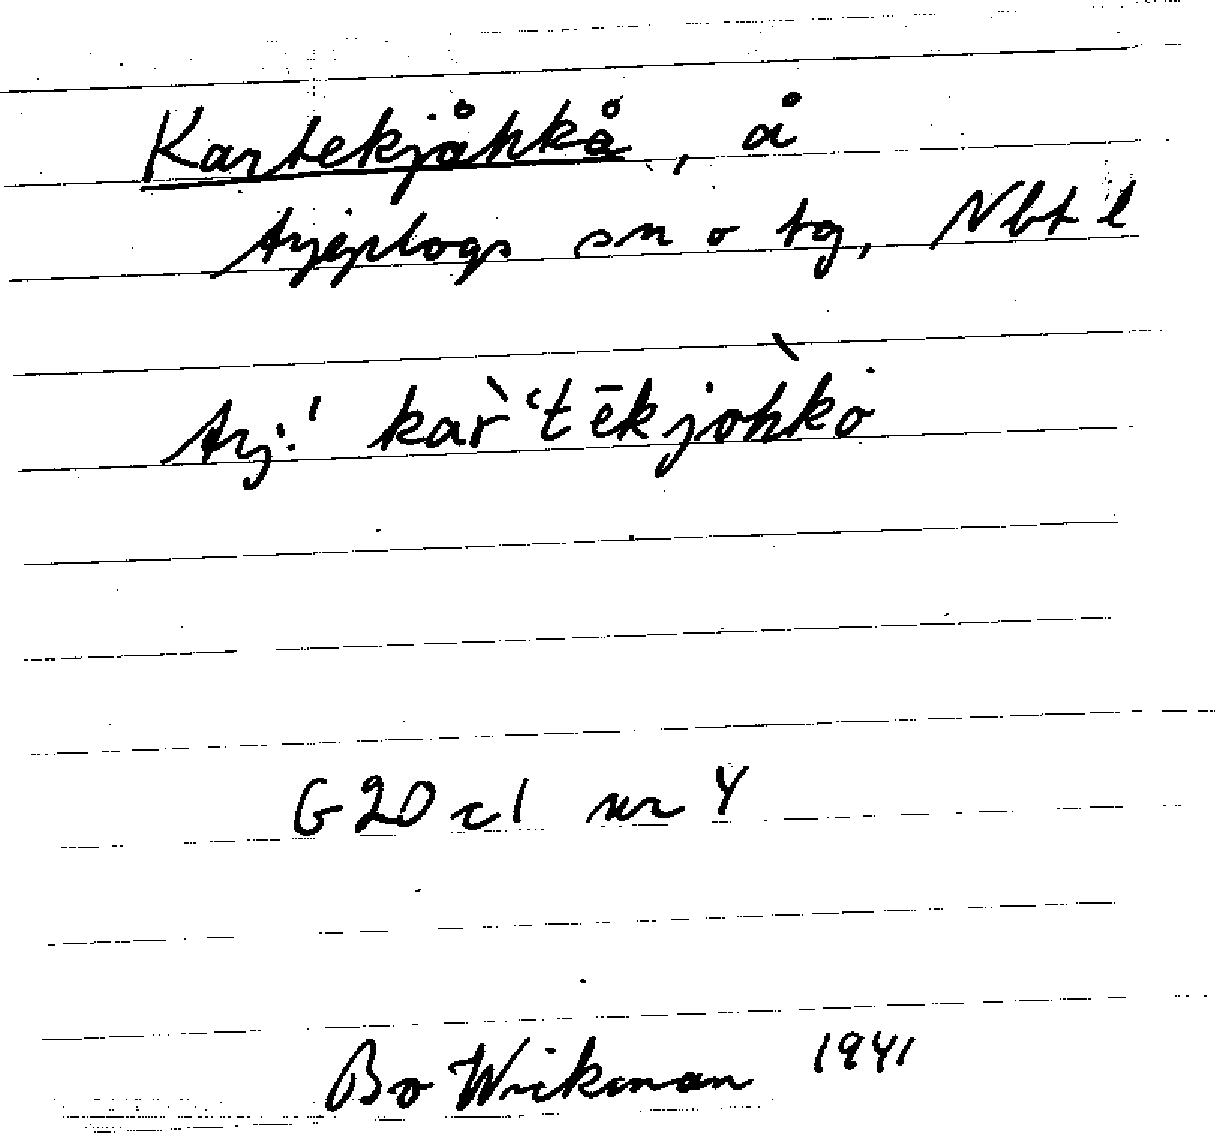 Kartekjåhkå, å
Arjeplogs sn o tg, Nbt l
Arj.! kar̀ʽtēkjoh̀ko
G20 c1 nr 4
Bo Wickman 1941